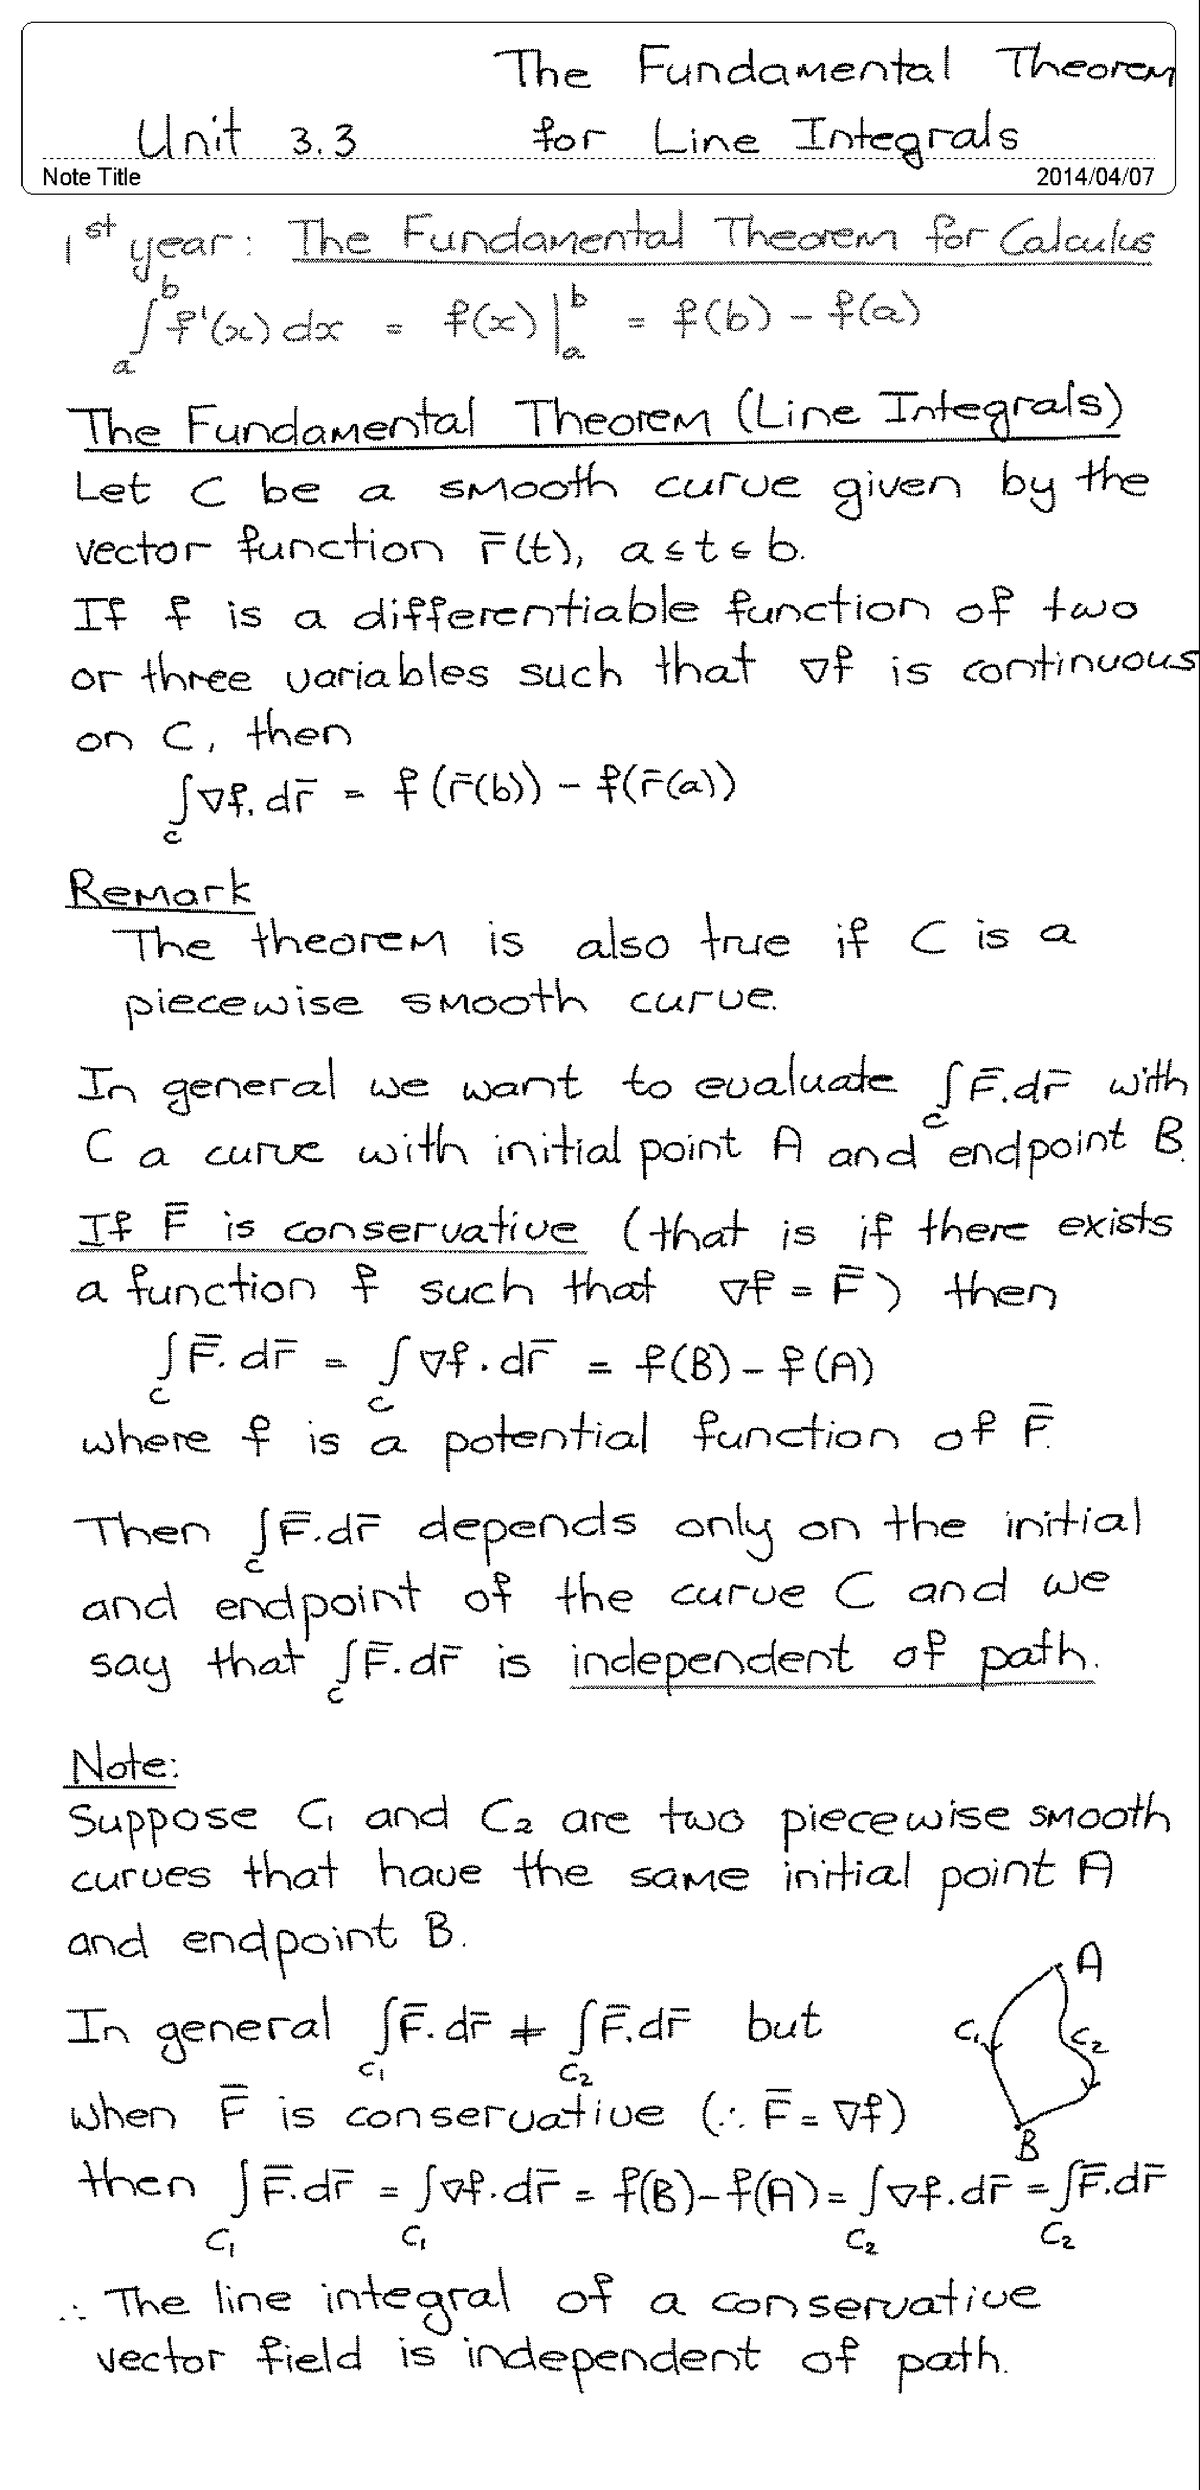 The Fundamental Theorem
Unit 3.3 for Line Integrals
Note Title 2014/04/07
1st year: The Fundamental Theorem for Calculus
∫_a^b f'(x) dx = f(x)|_a^b = f(b) - f(a)
The Fundamental Theorem (Line Integrals)
Let C be a smooth curve given by the
vector function r̄(t), a ≤ t ≤ b.
If f is a differentiable function of two
or three variables such that ∇f is continuous
on C, then
∫_C ∇f. dr̄ = f(r̄(b)) - f(r̄(a))
Remark
The theorem is also true if C is a
piecewise smooth curve.
In general we want to evaluate ∫_C F̄.dr̄ with
C a curve with initial point A and endpoint B.
If F̄ is conservative (that is if there exists
a function f such that ∇f = F̄) then
∫_C F̄. dr̄ = ∫_C ∇f. dr̄ = f(B) - f(A)
where f is a potential function of F̄.
Then ∫_C F̄.dr̄ depends only on the initial
and endpoint of the curve C and we
say that ∫_C F̄.dr̄ is independent of path.
Note:
Suppose C₁ and C₂ are two piecewise smooth
curves that have the same initial point A
and endpoint B.
A
In general ∫_C₁ F̄.dr̄ ≠ ∫_C₂ F̄.dr̄ but
C₁ C₂
when F̄ is conservative (∴ F̄ = ∇f)
B
then ∫_C₁ F̄.dr̄ = ∫_C₁ ∇f.dr̄ = f(B) - f(A) = ∫_C₂ ∇f.dr̄ = ∫_C₂ F̄.dr̄
∴ The line integral of a conservative
vector field is independent of path.